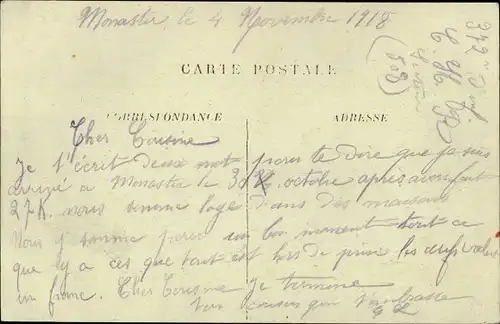 Monastir le 4 Novembre 1918
CARTE POSTALE
CORRESPONDANCE
ADRESSE
Cher Cousine
Je t'écrit deux mot pour te dire que je suis
arrizé a Monastir le 30 octobre apres avoir fait
27 K. nous somme logé dans des maisons
Nous y somme pour un bon moment tout ce
que y a ces que tout est hors de prix les œufs valent
un franc. Cher Cousine je termine
Ton cousin qui t'embrasse